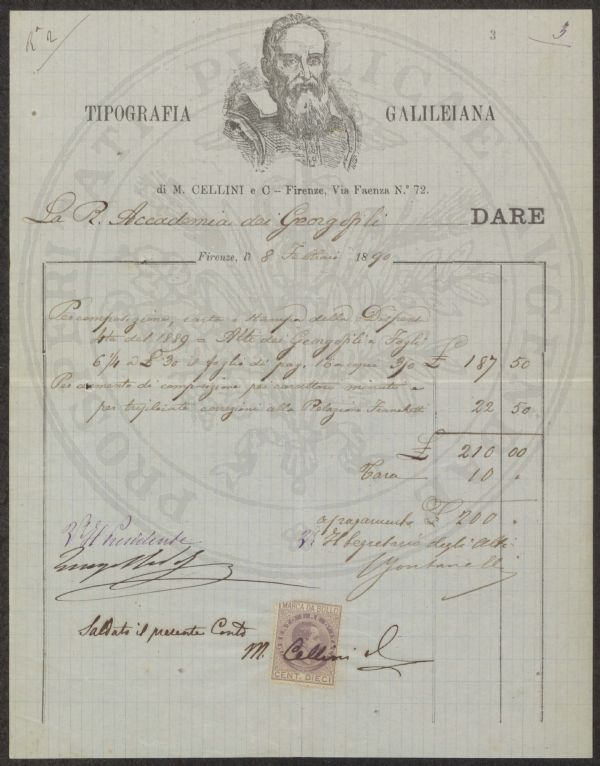 Nº 2
3
3
TIPOGRAFIA GALILEIANA
di M. CELLINI e C – Firenze, Via Faenza N.º 72.
La R. Accademia dei Georgofili DARE
Firenze, li 8 Febbraio 1890
Per composizione, carta e stampa della Dispensa
4ta del 1889 = Atti dei Georgofili = Fogli
6 1/4 a £ 30 il foglio di pag. 16 £ 187 50
Per aumento di composizione pei caratteri minuti e
per triplicate correzioni alla Relazione Franchetti 22 50
£ 210 00
Tara 10 "
a pagamento £ 200 "
Vº Il Presidente
Vº Il Segretario degli Atti
Saldato il presente Conto
M. Cellini
MARCA DA BOLLO
CENT. DIECI